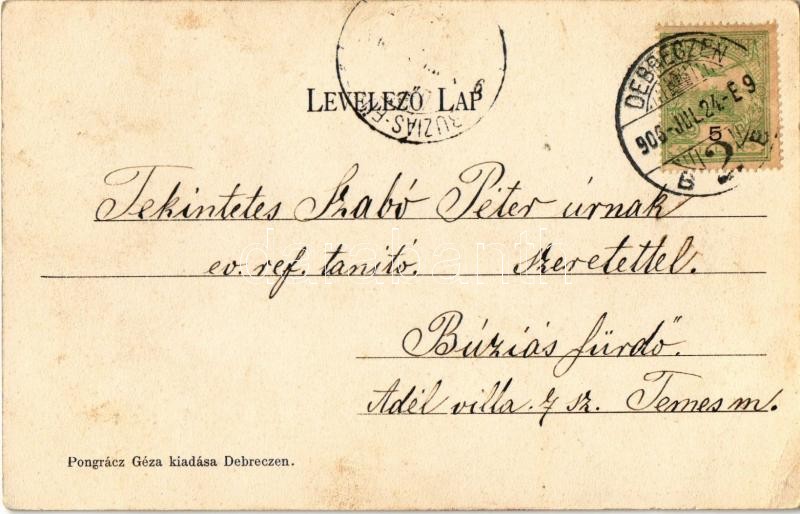 LEVELEZŐ LAP
BUZIÁS-F
DEBRECZEN
906-JUL.24-É9
5
Tekintetes Szabó Péter úrnak
ev. ref. tanitó. szeretettel.
Búziás fürdő.
Adél villa. 7 sz. Temes m.
Pongrácz Géza kiadása Debreczen.